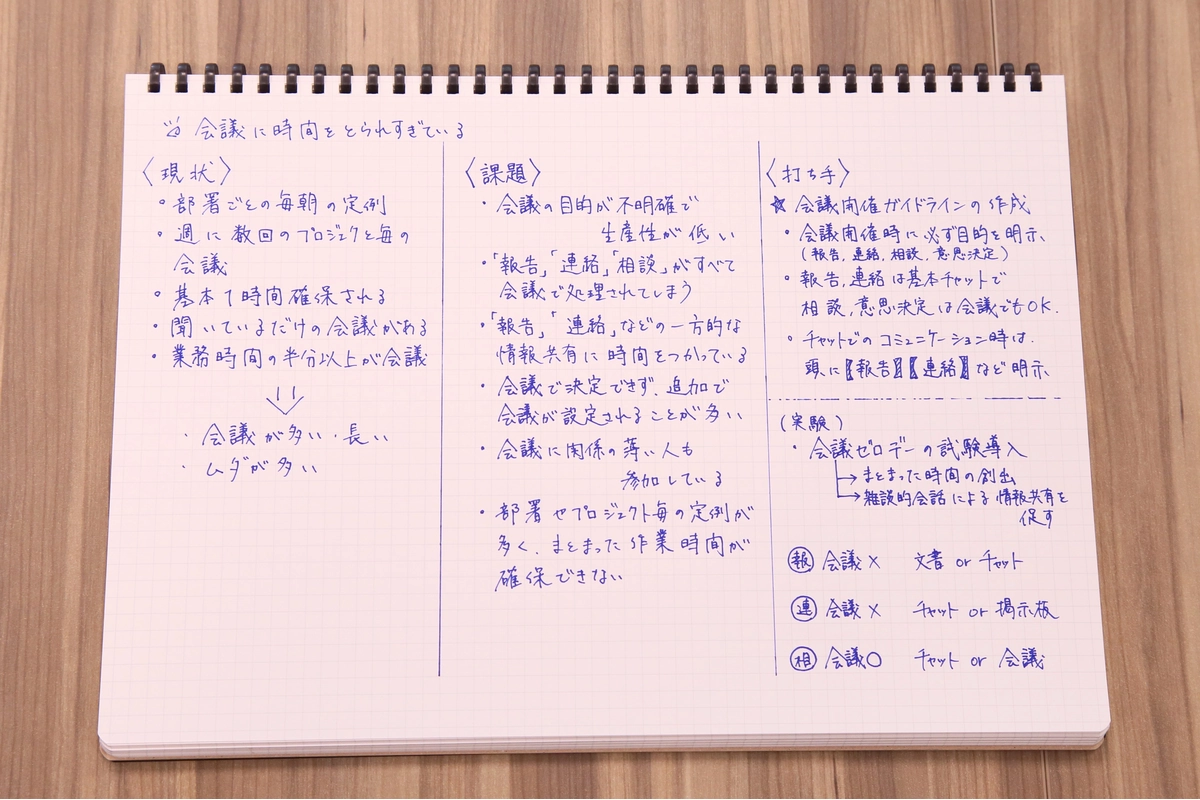 会議に時間をとられすぎている
〈現状〉
・部署ごとの毎朝の定例
・週に数回のプロジェクト毎の
会議
・基本1時間確保される
・聞いているだけの会議がある
・業務時間の半分以上が会議
・会議が多い・長い
・ムダが多い
〈課題〉
・会議の目的が不明確で
生産性が低い
・「報告」「連絡」「相談」がすべて
会議で処理されてしまう
・「報告」「連絡」などの一方的な
情報共有に時間をつかっている
・会議で決定できず、追加で
会議が設定されることが多い
・会議に関係の薄い人も
参加している
・部署やプロジェクト毎の定例が
多く、まとまった作業時間が
確保できない
〈打ち手〉
☆ 会議開催ガイドラインの作成
・会議開催時に必ず目的を明示
(報告、連絡、相談、意思決定)
・報告、連絡は基本チャットで
相談、意思決定は会議でもOK.
・チャットでのコミュニケーション時は、
頭に【報告】【連絡】など明示
(実験)
・会議ゼロデーの試験導入
→まとまった時間の創出
→雑談的会話による情報共有を
促す
報 会議× 文書 or チャット
連 会議× チャット or 掲示板
相 会議○ チャット or 会議